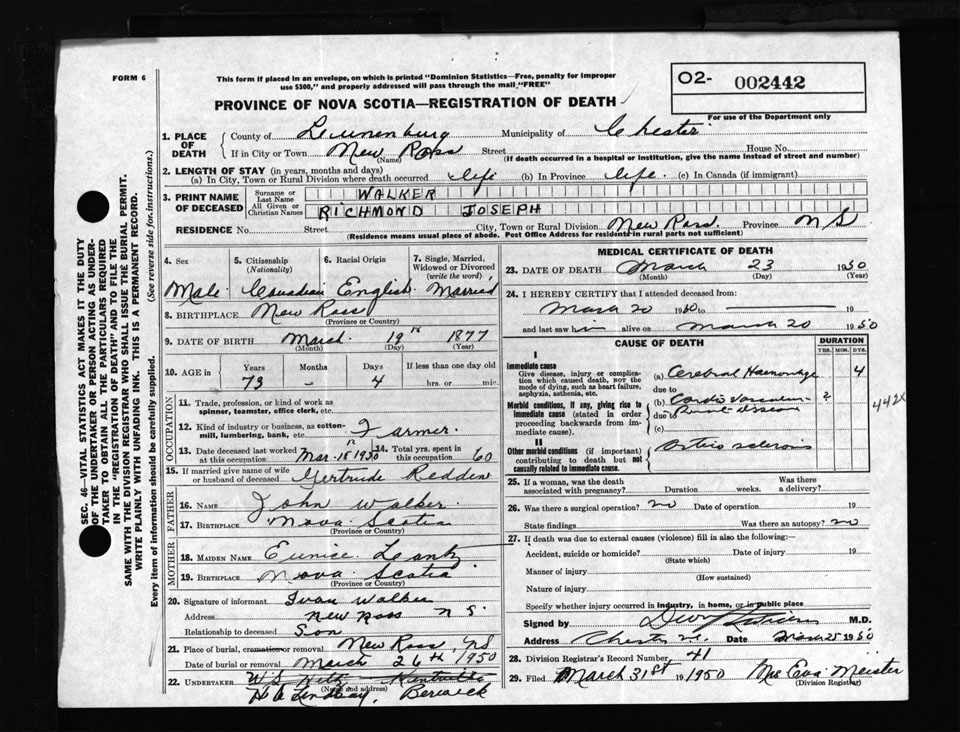 FORM 6
This form if placed in an envelope, on which is printed "Dominion Statistics—Free, penalty for improper
use $300," and properly addressed will pass through the mail "FREE"
O2- 002442
PROVINCE OF NOVA SCOTIA—REGISTRATION OF DEATH
For use of the Department only
1. PLACE OF DEATH
County of Lunenburg Municipality of Chester
If in City or Town New Ross Street House No.
(Name) (If death occurred in a hospital or institution, give the name instead of street and number)
2. LENGTH OF STAY (in years, months and days)
(a) In City, Town or Rural Division where death occurred life (b) In Province life. (c) In Canada (if immigrant)
3. PRINT NAME OF DECEASED
Surname or Last Name WALKER
All Given or Christian Names RICHMOND JOSEPH
RESIDENCE No. Street City, Town or Rural Division New Ross. Province N S
(Residence means usual place of abode. Post Office Address for residents in rural parts not sufficient)
4. Sex 5. Citizenship (Nationality) 6. Racial Origin 7. Single, Married, Widowed or Divorced (write the word)
Male Canadian English Married
8. BIRTHPLACE New Ross
(Province or Country)
9. DATE OF BIRTH March 19th 1877
(Month) (Day) (Year)
10. AGE in Years Months Days If less than one day old
73 – 4 hrs. or min.
OCCUPATION
11. Trade, profession or kind of work as
spinner, teamster, office clerk, etc.
12. Kind of industry or business, as cotton-
mill, lumbering, bank, etc. Farmer.
13. Date deceased last worked at this occupation Mar. 18th 1950 14. Total yrs. spent in this occupation 60
15. If married give name of wife
or husband of deceased Gertrude Redden
FATHER
16. NAME John Walker
17. BIRTHPLACE Nova Scotia
(Province or Country)
MOTHER
18. MAIDEN NAME Eunice
19. BIRTHPLACE Nova Scotia
(Province or Country)
20. Signature of informant Ivan Walker
Address New Ross N S.
Relationship to deceased Son
21. Place of burial, cremation or removal New Ross, NS
Date of burial or removal March 26th 1950
22. UNDERTAKER W.S. Kentville
(Name and address)
Lindsay, Berwick
MEDICAL CERTIFICATE OF DEATH
23. DATE OF DEATH March 23 1950
(Month) (Day) (Year)
24. I HEREBY CERTIFY that I attended deceased from:
March 20 1950 to 19
and last saw him alive on March 20 1950
CAUSE OF DEATH
DURATION
YRS. MOS. DYS.
I
Immediate cause
Give disease, injury or complication which caused death, not the mode of dying, such as heart failure, asphyxia, asthenia, etc.
(a) Cerebral Haemorrhage 4
due to
Morbid conditions, if any, giving rise to immediate cause (stated in order proceeding backwards from immediate cause).
(b) Cardio vascular- ?
due to Renal disease
(c)
442X
II
Other morbid conditions (if important) contributing to death but not causally related to immediate cause.
Arterio sclerosis
25. If a woman, was the death
associated with pregnancy? Duration weeks. Was there a delivery?
26. Was there a surgical operation? no Date of operation 19
State findings Was there an autopsy? no
27. If death was due to external causes (violence) fill in also the following:—
Accident, suicide or homicide? Date of injury 19
(State which)
Manner of injury
(How sustained)
Nature of injury
Specify whether injury occurred in industry, in home, or in public place
Signed by M.D.
Address Chester N.S. Date March 25 1950
28. Division Registrar's Record Number 41
29. Filed March 31st 1950 Mrs Eva Meister
(Division Registrar)
SEC. 46—VITAL STATISTICS ACT MAKES IT THE DUTY
OF THE UNDERTAKER OR PERSON ACTING AS UNDER-
TAKER TO OBTAIN ALL THE PARTICULARS REQUIRED
IN THE "REGISTRATION OF DEATH" AND TO FILE THE
SAME WITH THE DIVISION REGISTRAR WHO SHALL ISSUE THE BURIAL PERMIT.
WRITE PLAINLY WITH UNFADING INK. THIS IS A PERMANENT RECORD.
Every item of information should be carefully supplied. (See reverse side for instructions.)